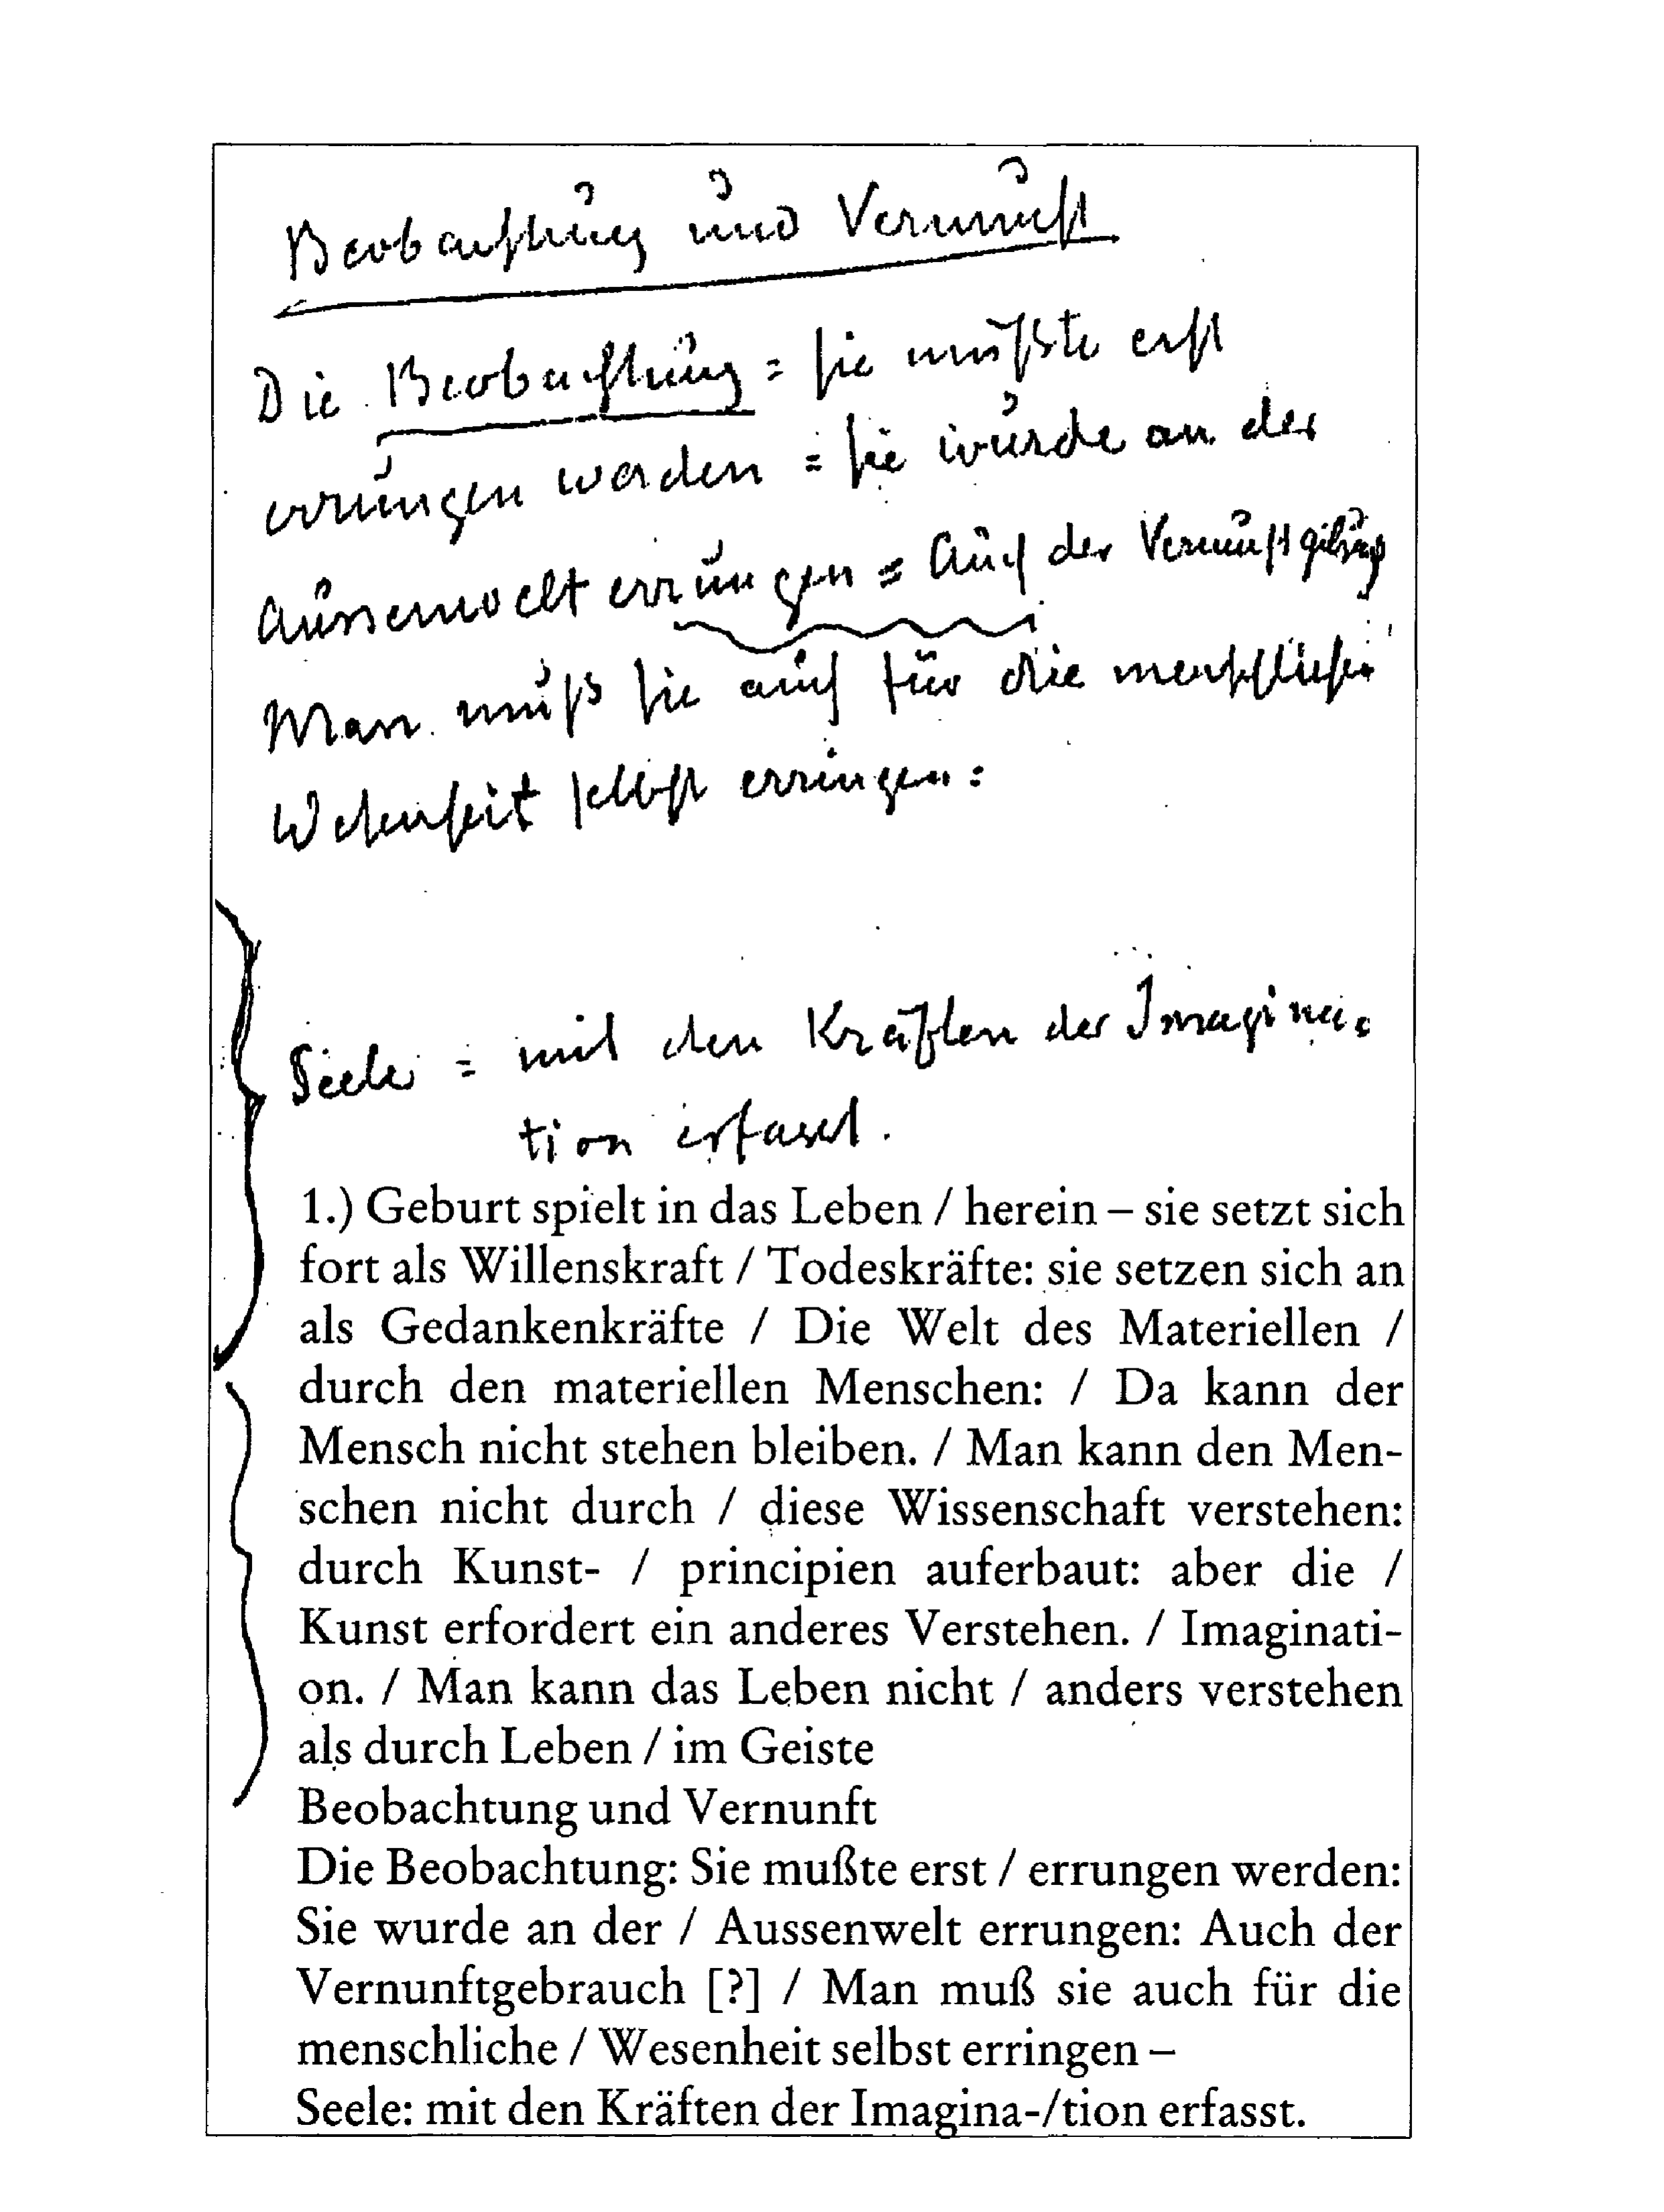 Beobachtung und Vernunft
Die Beobachtung = sie mußte erst
errungen werden = sie wurde an der
Aussenwelt errungen = Auch der
Man muß sie auch für die menschliche
Wesenheit selbst erringen =
Seele = mit den Kräften der Imagina-
tion erfasst.
1.) Geburt spielt in das Leben / herein – sie setzt sich
fort als Willenskraft / Todeskräfte: sie setzen sich an
als Gedankenkräfte / Die Welt des Materiellen /
durch den materiellen Menschen: / Da kann der
Mensch nicht stehen bleiben. / Man kann den Men-
schen nicht durch / diese Wissenschaft verstehen:
durch Kunst- / principien auferbaut: aber die /
Kunst erfordert ein anderes Verstehen. / Imaginati-
on. / Man kann das Leben nicht / anders verstehen
als durch Leben / im Geiste
Beobachtung und Vernunft
Die Beobachtung: Sie mußte erst / errungen werden:
Sie wurde an der / Aussenwelt errungen: Auch der
Vernunftgebrauch [?] / Man muß sie auch für die
menschliche / Wesenheit selbst erringen –
Seele: mit den Kräften der Imagina-/tion erfasst.